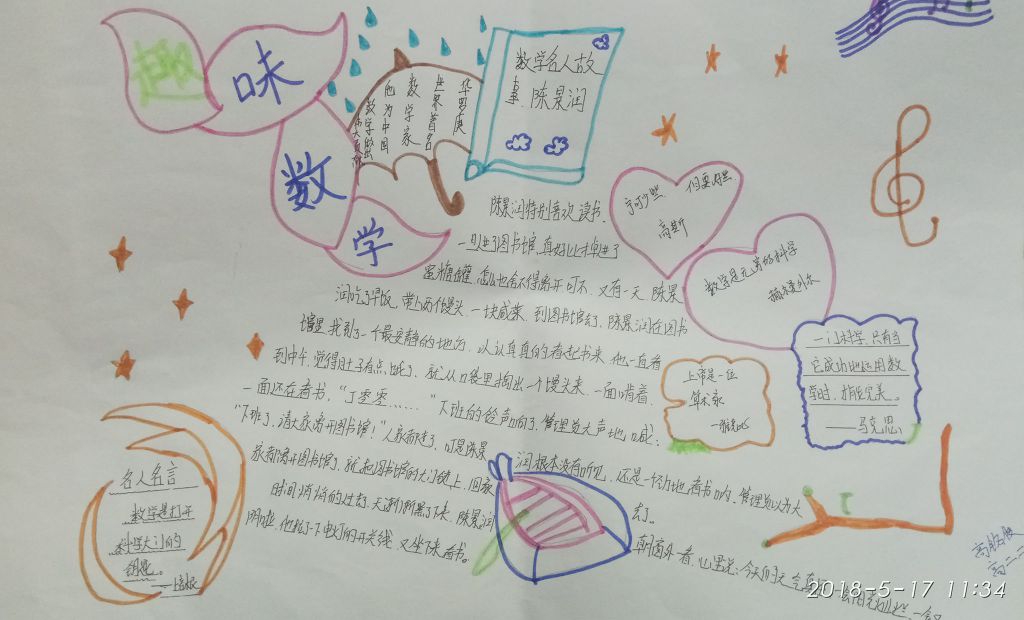 趣
味
数
学
华罗庚
世界著名
数学家
他为中国
数学做
数学名人故
事.陈景润
宁可少些 但要好些
高斯
数学是无穷的科学
赫尔曼外尔
陈景润特别喜欢读书.
一旦进了图书馆,真好比掉进了
蜜糖罐,怎么也舍不得离开可不,又有一天,陈景
润吃了早饭,带上两个馒头,一块咸菜,到图书馆去了,陈景润在图书
馆里,找到了一个最安静的地方,认认真真的看起书来,他一直看
到中午,觉得肚子有点饿了,就从口袋里掏出一个馒头来,一面啃着,
一面还在看书,"丁零零……"下班的铃声响了,管理员大声地喊:
"下班了,请大家离开图书馆!"人家都走了,可是陈景
润根本没有听见,还是一个劲地看书呐,管理员以为大
家都离开图书馆了,就把图书馆的大门锁上,回家
去了。
时间悄悄的过去,天渐渐黑了下来,陈景润
朝窗外一看,心里说:今天的天气真
阴啦,他拉了下电灯的开关线,又坐下来看书。
上帝是一位
算术家
一门科学,只有当
它成功地运用数
学时,才能完美。
——马克思
名人名言
数学是打开
科学大门的
钥匙。
——培根
高二二
2018-5-17 11:34